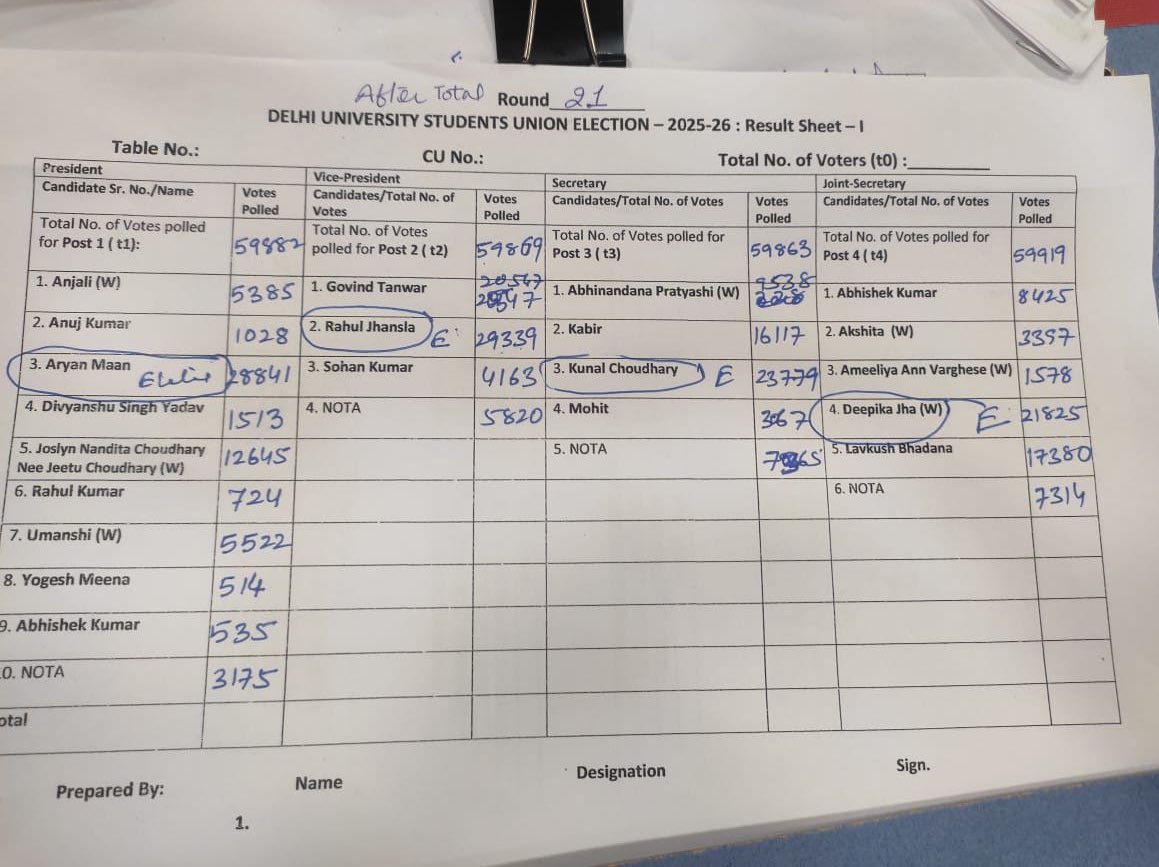 After Total Round 21
DELHI UNIVERSITY STUDENTS UNION ELECTION – 2025-26 : Result Sheet – I
Table No.: CU No.: Total No. of Voters (t0) :
President Vice-President Secretary Joint-Secretary
Candidate Sr. No./Name Votes Polled Candidates/Total No. of Votes Votes Polled Candidates/Total No. of Votes Votes Polled Candidates/Total No. of Votes Votes Polled
Total No. of Votes polled for Post 1 ( t1): 59882 Total No. of Votes polled for Post 2 ( t2) 59869 Total No. of Votes polled for Post 3 ( t3) 59863 Total No. of Votes polled for Post 4 ( t4) 59919
1. Anjali (W) 5385 1. Govind Tanwar 20547 1. Abhinandana Pratyashi (W) 9538 1. Abhishek Kumar 8425
2. Anuj Kumar 1028 2. Rahul Jhansla E 29339 2. Kabir 16117 2. Akshita (W)
3. Aryan Maan 28841 3. Sohan Kumar 4163 3. Kunal Choudhary E 23779 3. Ameeliya Ann Varghese (W) 1578
4. Divyanshu Singh Yadav 1513 4. NOTA 5820 4. Mohit 4. Deepika Jha (W) E 21825
5. Joslyn Nandita Choudhary Nee Jeetu Choudhary (W) 12645 5. NOTA 5. Lavkush Bhadana 17380
6. Rahul Kumar 724 6. NOTA 7314
7. Umanshi (W) 5522
8. Yogesh Meena 514
9. Abhishek Kumar 535
0. NOTA 3175
otal
Prepared By: Name Designation Sign.
1.